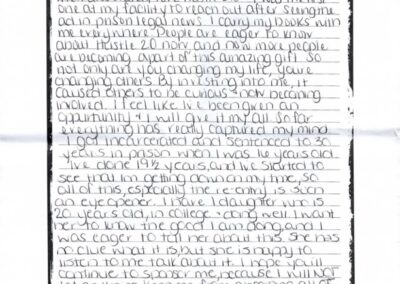 one at my facility to reach out after seeing the
ad in prison legal news I carry my books with
me everywhere. People are eager to know
about Hustle 2.0 now, and now more people
are becoming a part of this amazing gift. So
not only are you changing my life, you're
changing others. By investing into me, it
caused others to be curious + now becoming
involved. I feel like I've been given an
opportunity + I will give it my all. So far
everything has really captured my mind.
I got incarcerated and sentenced to 30
years in prison when I was 16 years old.
I've done 19½ years, and I've started to
see that im getting down on my time, so
all of this, especially the re-entry is such
an eye opener. I have 1 daughter who is
20 years old, in college + doing well. I want
her to know the good I am doing, and I
was eager to tell her about this. She has
no clue what it is, but she is happy to
listen to me talk about it. I hope you'll
continue to sponsor me, because I will NOT